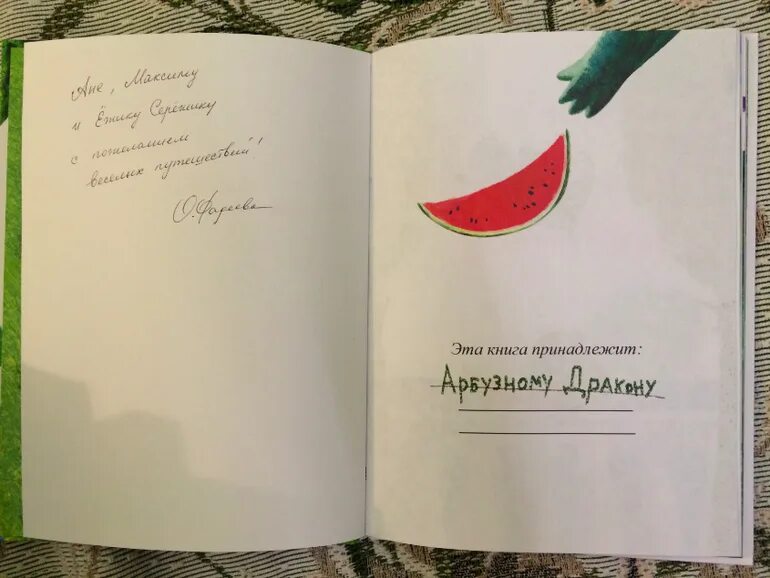 Ане, Максиму
и Ёжику Серёжику
с пожеланием
веселых путешествий!
О. Фадеева
Эта книга принадлежит:
Арбузному Дракону